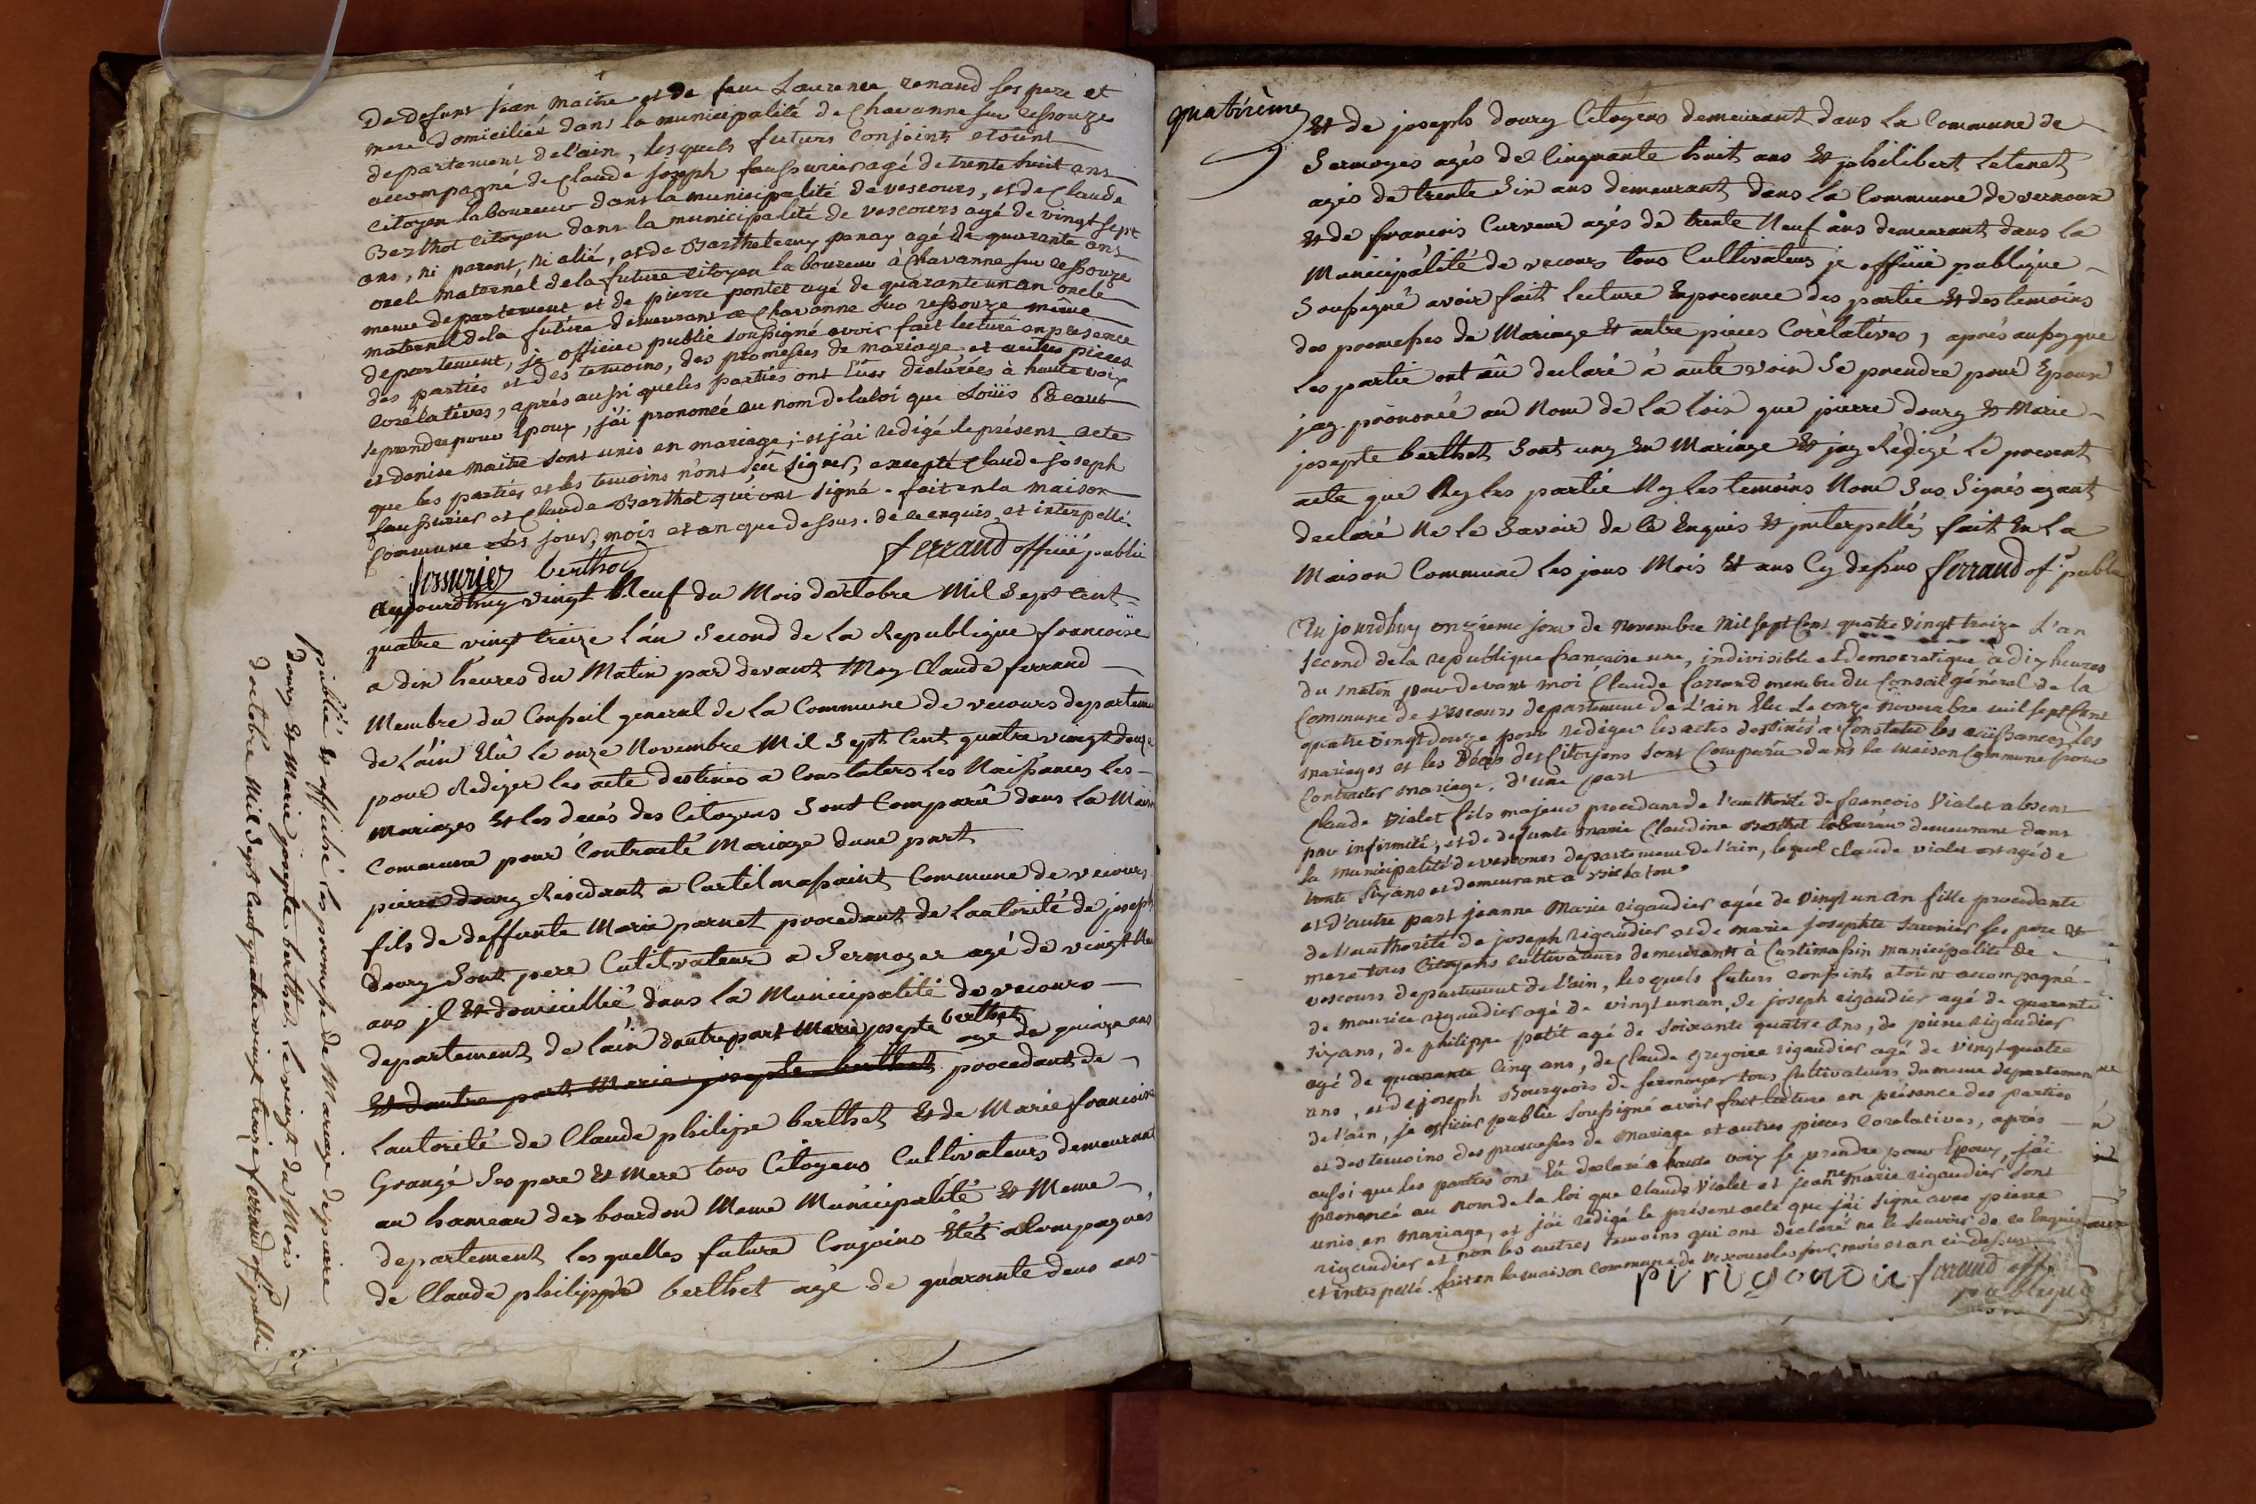 De defunt jean maitre et de feue Laurence renaud ses pere et
mere domiciliés dans la municipalité de Chavanne sur ressouze
departement de l'ain, lesquels futurs conjoints etoient
accompagné de Claude joseph faussurier agé de trente huit ans
citoyen laboureur dans la municipalité de vescours, et de Claude
Berthot citoyen dans la municipalité de vescours agé de vingt sept
ans, ni parent, ni alié, et de Barthelemy panay agé de quarante ans
oncle maternel de la future citoyen laboureur à Chavanne sur ressouze
meme departement et de pierre pontet agé de quarante un an oncle
maternel de la future demeurant a Chavanne sur ressouze même
departement, je officier public soussigné avoir fait lecture en presence
des parties et des temoins, des promesses de mariage et autres pieces
corélatives, aprés aussi que les parties ont eues déclarées à haute voix
se prendre pour Epoux, j'ai prononcée au nom de la loi que Loüis
et denise maitre sont unis en mariage; et j'ai redigé le présent acte
que les parties et les temoins n'ont sçu signer, excepté Claude joseph
faussurier et Claude Berthot qui ont signé. fait en la maison
Commune les jour, mois et an que dessus. de ce enquis et interpellé.
fossurier berthot ferrand officié public
Aujourdhuy vingt Neuf du Mois doctobre Mil Sept Cent
quatre vingt treize l'an Second de La Republique francoise
a dix heures du Matin par devant Moy Claude ferrand
Membre du Conseil general de La Commune de vecours departemen
de L'ain Elû Le onze Novembre Mil Sept Cent quatre vingt douze
pour Rediger Les acte destinés a Constater Les Naissances Les
Mariages Et Les decés des Citoyens Sont Comparû dans La Maison
Commune pour Contracté Mariage dune part
pierre dourg Residant a Curtil massaint Commune de vecours
fils de deffunte Marie parnet procedant de Lautorité de joseph
dourg Sont pere Cultivateur a Sermoyer agé de vingt
ans jl Et domicillié dans La Municipalité de vecours
departement de L'ain dautre part Marie josepte berthet
Et dautre part Marie josepte berthet agé de quinze ans procedant de
Lautorité de Claude philipe berthet Et de Marie francoise
Grangé Ses pere Et Mere tous Citoyens Cultivateurs demeurant
au hameau des bourdon Meme Municipalité Et Meme
departement Les quelles future Conjoins Etés acompagnés
de Claude philippe berthet agé de quarante deux ans
publié Et affiché Les promesse de Mariage de piaire
dourg Et Marie josepte berthet Le vingt du Mois
doctobre Mil Sept Cent quatre vingt treize ferrand of. public
quatrième
Et de joseph dourg Citoyens demeurant dans La Commune de
Sermoyer agés de Cinquante huit ans Et philibert Letenet
agés de trente Six ans demeurant dans La Commune de vernoux
Et de francois Curveur agés de trente Neuf ans demeurant dans La
Municipálité de vecours tous Cultivateur je officié publique
Soussigné avoir fait Lecture En presence des partie Et des temoins
des promesses de Mariage Et autre pieces Corèlatives, aprés aussy que
Les partie ont aû declaré á auté voix Se prendre pour Epoux
jay prononcé au Nom de La Loix que pierre dourg Et Marie
josepte berthet Sont uny En Mariage Et jay Rédigé Le present
acte que Ny Les partié Ny Les temoins Nons Sus Signés ayant
declaré Ne Le Savoir de Ce Enquis Et jnterpellés fait En La
Maison Commune Les jour Mois Et ans Cy dessus ferrand of. public
Au jourdhuy onziéme jour de Novembre mil sept Cent quatre vingt treize L'an
second de la republique française une, indivisible et democratique à dix heures
du matin par devant moi Claude ferrand membre du Conseil général de la
Commune de vescours departement de L'ain Elu le onze novembre mil sept Cent
quatre vingt douze pour rédiger les actes destinés à Constater les naissances les
mariages et les décés des Citoyens sont Comparu dans la maison Commune pour
Contracter mariage, d'une part
Claude vialet fils majeur procedant de l'authorité de francois Vialet absent
par infirmité, et de defunte marie Claudine Berthet laboureur demeurant dans
la municipalité de vescours departement de l'ain, lequel Claude vialet est agé de
trente six ans et demeurant a
et d'autre part jeanne Marie rigaudier agée de vingt un an fille procedante
de l'authorité de joseph rigaudier et de marie josephte saunier ses pere et
mere tous Citoyens cultivateurs demeurants à Curtimassin municipalité de
vescours departement de l'ain, lesquels futurs conjoints etoient accompagné
de maurice rigaudier agé de vingt un an, de joseph rigaudier agé de quarante
six ans, de philippe petit agé de soixante quatre ans, de pierre rigaudier
agé de quarante cinq ans, de Claude gregoire rigaudier agé de vingt quatre
ans, et de joseph Bourgeois de sermoyer tous Cultivateurs du meme departement
de l'ain, je officier public soussigné avoir fait lecture en présence des parties
et des temoins des promesses de Mariage et autres pieces Corelatives, aprés
aussi que les parties ont Eû declaré a haute voix se prendre pour Epoux, j'ai
prononcé au nom de la loi que Claude Vialet et jeanne Marie rigaudier sont
unis en mariage, et j'ai redigé le présent acte que j'ai signé avec pierre
rigaudier et non les autres temoins qui ont déclaré ne le scavoir de ce Enquis
et interpellé. fait en la maison commune de vescours les jour, mois et an ci-dessus
ferrand off.
publique